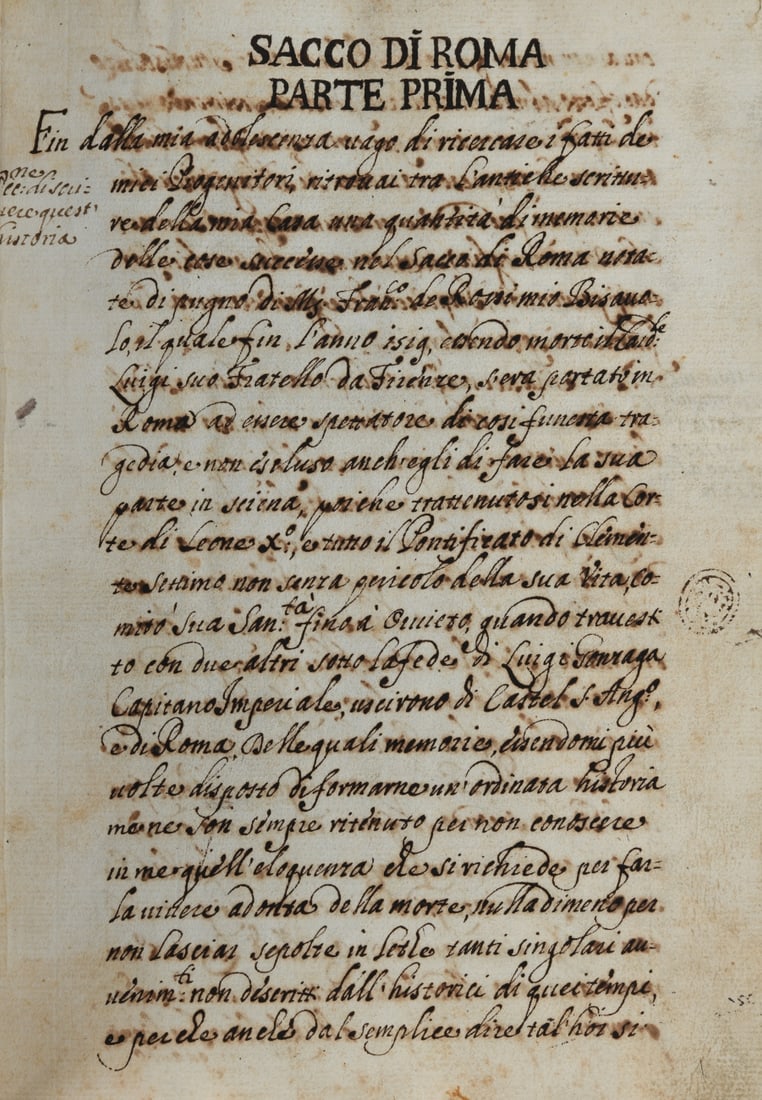 SACCO DI ROMA
PARTE PRIMA
Fin dalla mia adolescenza vago di ricercare i fatti de
miei Progenitori, ritrovai tra l'antiche scrittu-
re della mia Casa una quantità di memorie
delle cose successe nel Sacco di Roma nota-
te di pugno di Franc.º de Rossi mio Bisavo-
lo, il quale fin l'anno 1519, essendo morto il
Luigi suo Fratello da Firenze, s'era portato in
Roma ad essere spettatore di così funesta tra-
gedia, e non escluso anch'egli di fare la sua
parte in sciena, poiche trattenutosi nella Cor-
te di Leone Xº, e tutto il Pontificato di Clemen-
te settimo non senza pericolo della sua Vita, co-
mitò sua San.tà fino à Orvieto, quando travesti
to con due altri sotto la fede di Luigi Gonzaga
Capitano Imperiale, uscirono di Castel S. Ang.º,
e di Roma. Delle quali memorie, essendomi più
volte disposto di formarne un'ordinata historia
me ne son sempre ritenuto per non conoscere
in me quell'eloquenza che si richiede per far-
la vivere ad onta della morte, nulladimeno per
non lasciar sepolte in Lethe tanti singolari au-
venim.ti non descritti dall'historici di quei tempi,
e perche anche dal semplice dire tal'hor si
di scri-
vere quest'
historia